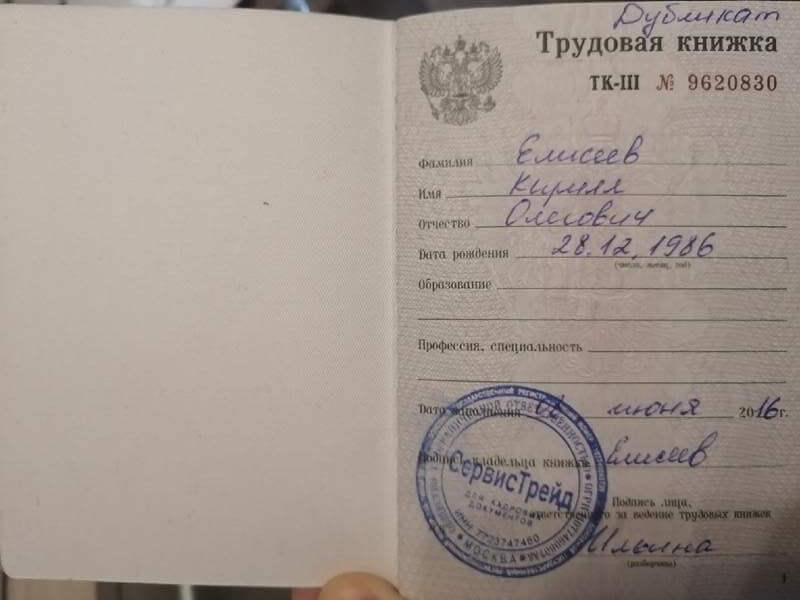 Дубликат
Трудовая книжка
ТК-III № 9620830
Фамилия Елисеев
Имя Кирилл
Отчество Олегович
Дата рождения 28.12.1986
(число, месяц, год)
Образование
Профессия, специальность
Дата заполнения июня 2016г.
Подпись владельца книжки Елисеев
СервисТрейд
ДЛЯ КАДРОВЫХ
ДОКУМЕНТОВ
ИНН 7723747460
* МОСКВА *
Подпись лица,
ответственного за ведение трудовых книжек
Ильина
(разборчиво)
1